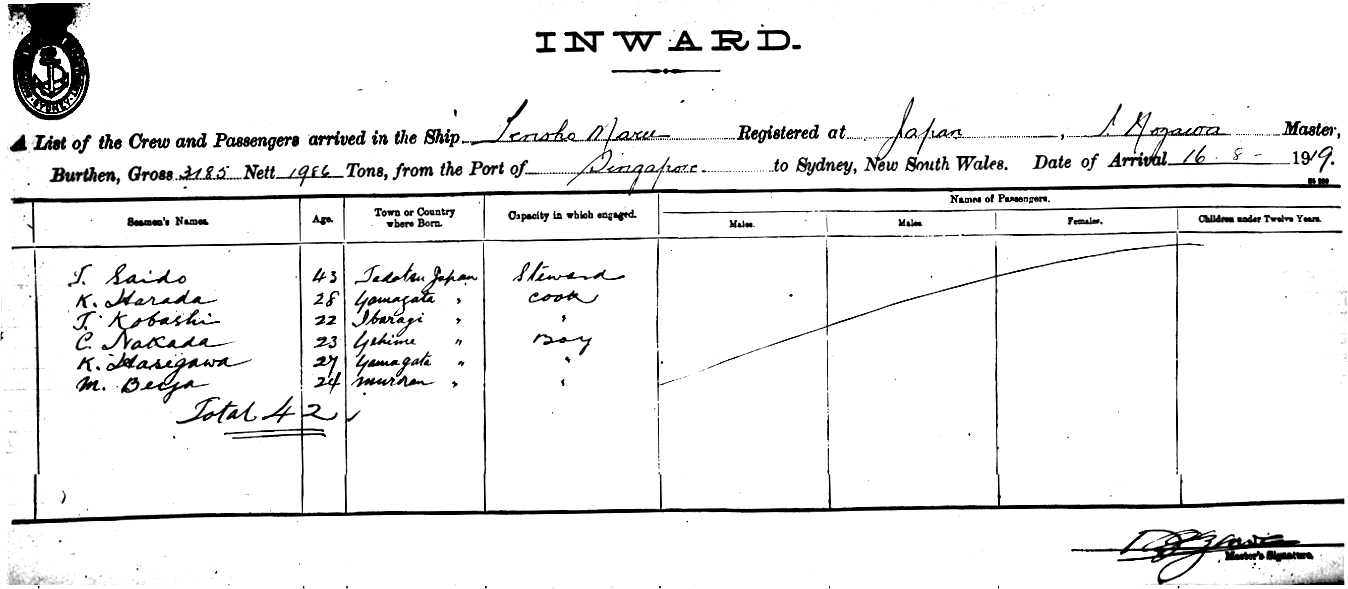 INWARD.
SYDNEY
A List of the Crew and Passengers arrived in the Ship Tensho Maru Registered at Japan, Master,
Burthen, Gross 3185 Nett 1986 Tons, from the Port of Singapore. to Sydney, New South Wales. Date of Arrival 16-8-1919.
Seamen's Names. Age. Town or Country where Born. Capacity in which engaged. Names of Passengers.
Males. Males Females. Children under Twelve Years.
T. Saido 43 Tadotsu Japan Steward
K. Harada 28 Yamagata " Cook
T. Kobashi 22 Ibaragi " "
C. Nakada 23 Yehime " Boy
K. Hasegawa 27 Yamagata " "
M. 24 Muroran " "
Total 42
Master's Signature.